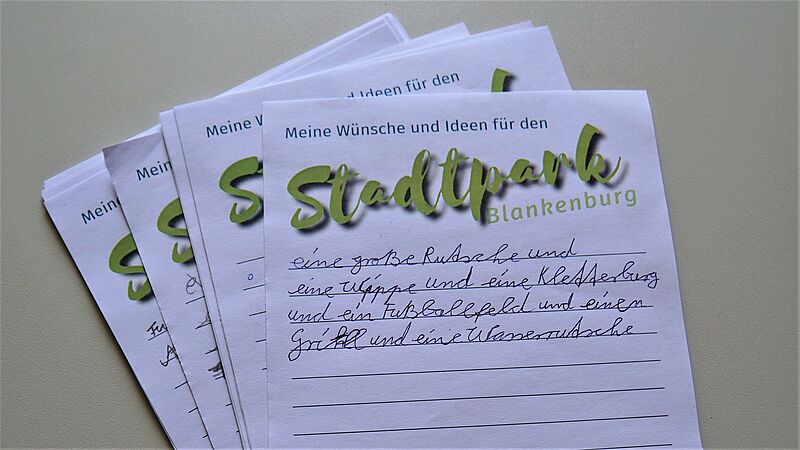 Meine Wünsche und Ideen für den
Stadtpark
Blankenburg
eine große Rutsche und
eine Wippe und eine Kletterburg
und ein Fußballfeld und einen
Grill und eine Wasserrutsche
Meine W
nd Ideen für den
S
Mein
S
Meine
S